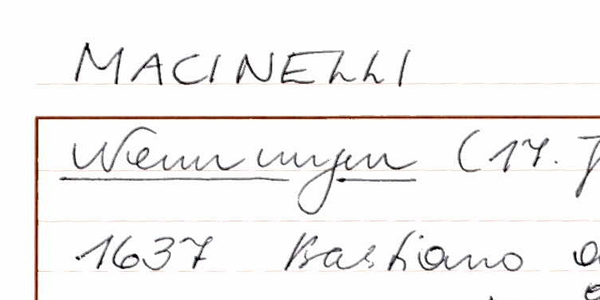 MACINELLI
Nennungen (17. J
1637 Bastiano